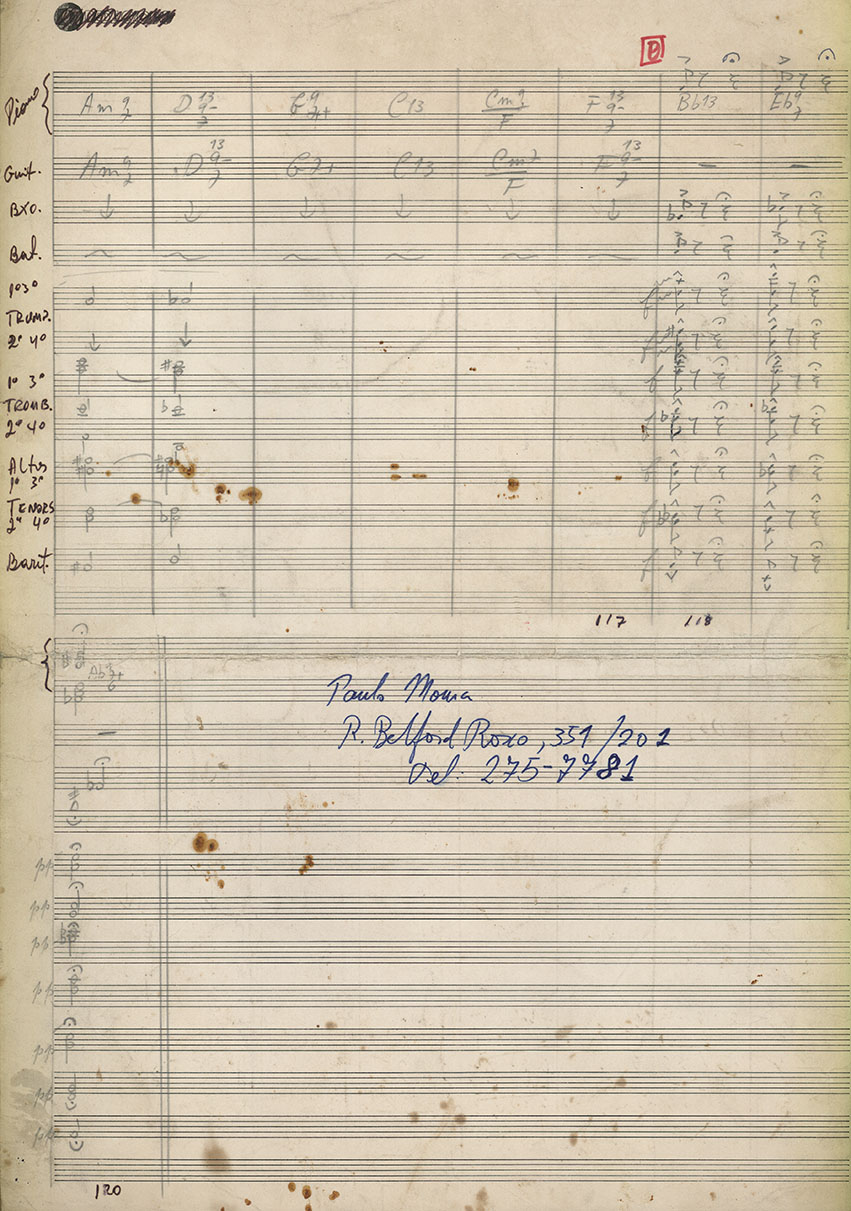 D
Piano Am 9 7 D 13 9- 7 G 9 7+ C13 Cm9 7 / F F 13 9- 7 Bb13 Eb 9 7
Guit. Am 9 7 D 13 9- 7 G7+ C13 Cm7 / F F 13 9- 7
Bxo.
Bat.
1º 3º
TRUMP.
2º 4º
1º 3º
TROMB.
2º 4º
Altos
1º 3º
TENORS
2º 4º
Barit.
f
f
f
f
f
f
f
117 118
Paulo Moura
R. Belford Roxo, 351/201
Tel: 275-7781
pp
pp
pp
pp
pp
pp
pp
120